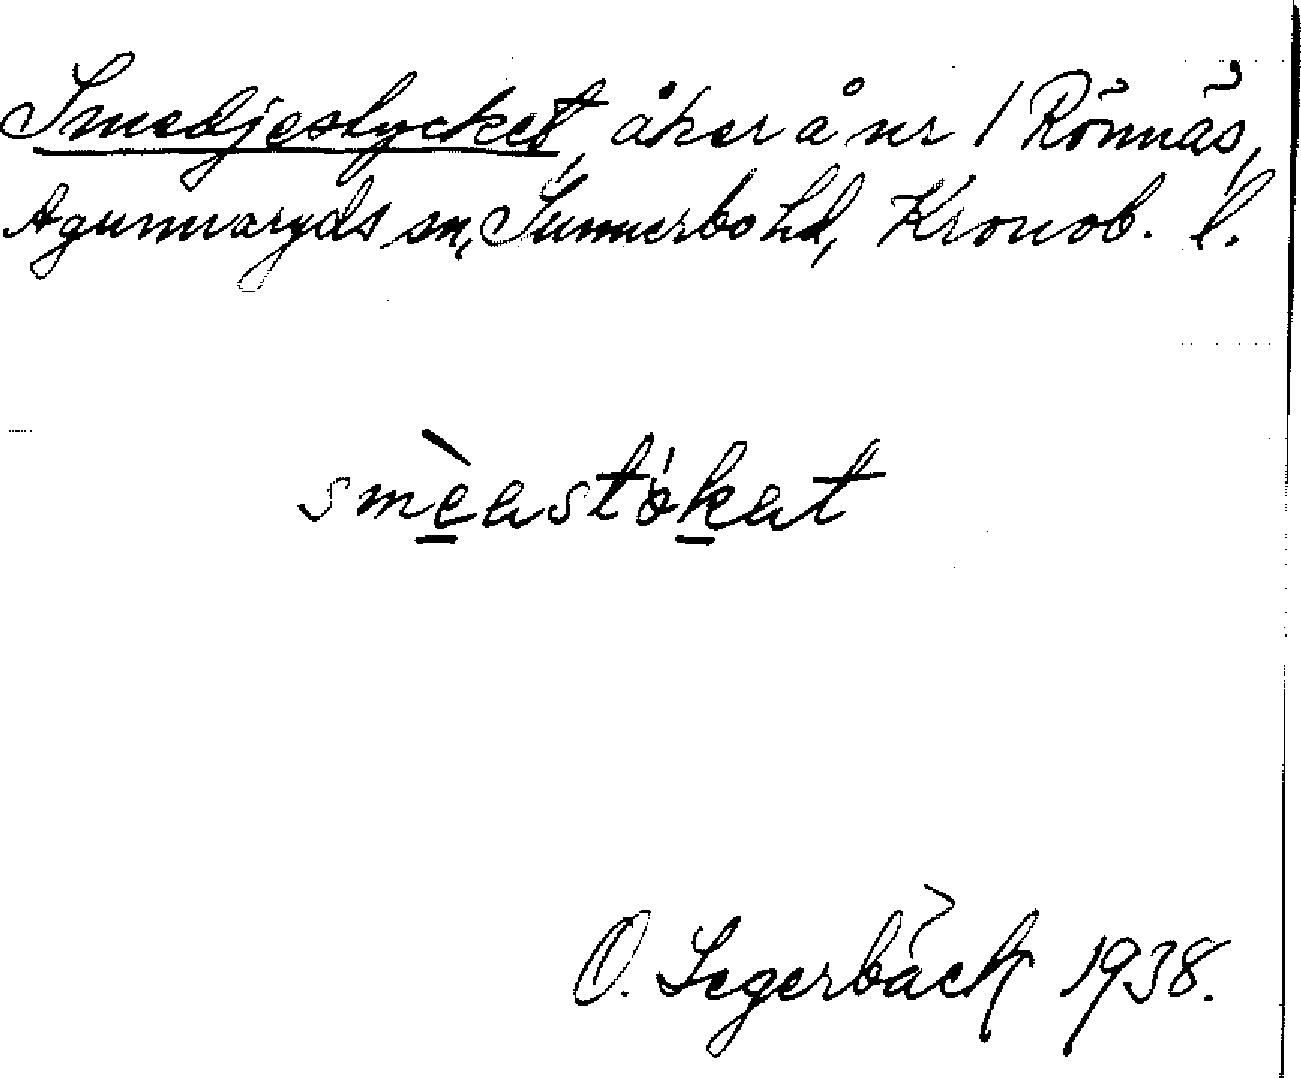 Smedjestycket, åker å nr 1 Rönnäs,
Agunnaryds sn, Sunnerbo hd, Kronob. l.
smèastókat
O. Segerbäck 1938.